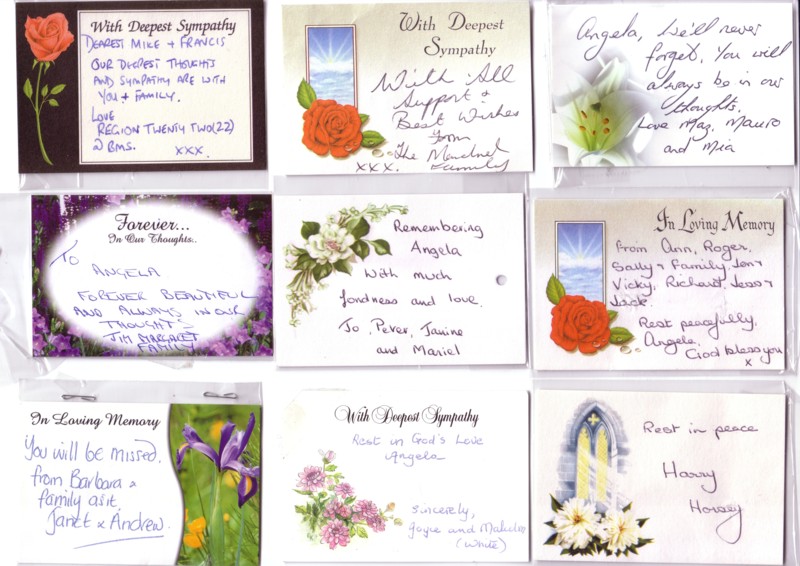 With Deepest Sympathy
DEAREST MIKE + FRANCIS
OUR DEEPEST THOUGHTS
AND SYMPATHY ARE WITH
YOU + FAMILY.
LOVE
REGION TWENTY TWO (22)
BMS.
XXX.
With Deepest
Sympathy
With All
Support &
Best Wishes
from
The
Family
XXX.
Angela, We'll never
forget. You will
always be in our
thoughts.
Love Maz, Mauro
and Mia
Forever...
In Our Thoughts..
TO
ANGELA
FOREVER BEAUTIFUL
AND ALWAYS IN OUR
THOUGHTS
JIM MARGARET
FAMILY
Remembering
Angela
With much
fondness and love,
Jo, Peter, Janine
and Mariel
In Loving Memory
From Ann, Roger,
Sally & Family, Jen &
Vicky, Richard, Jess &
Jack.
Rest peacefully,
Angela.
God bless you
x
In Loving Memory
You will be missed.
from Barbara &
family
Janet & Andrew.
With Deepest Sympathy
Rest in God's Love
Angela
Sincerely,
Joyce and Malcolm
(White)
Rest in peace
Harry
Horsey